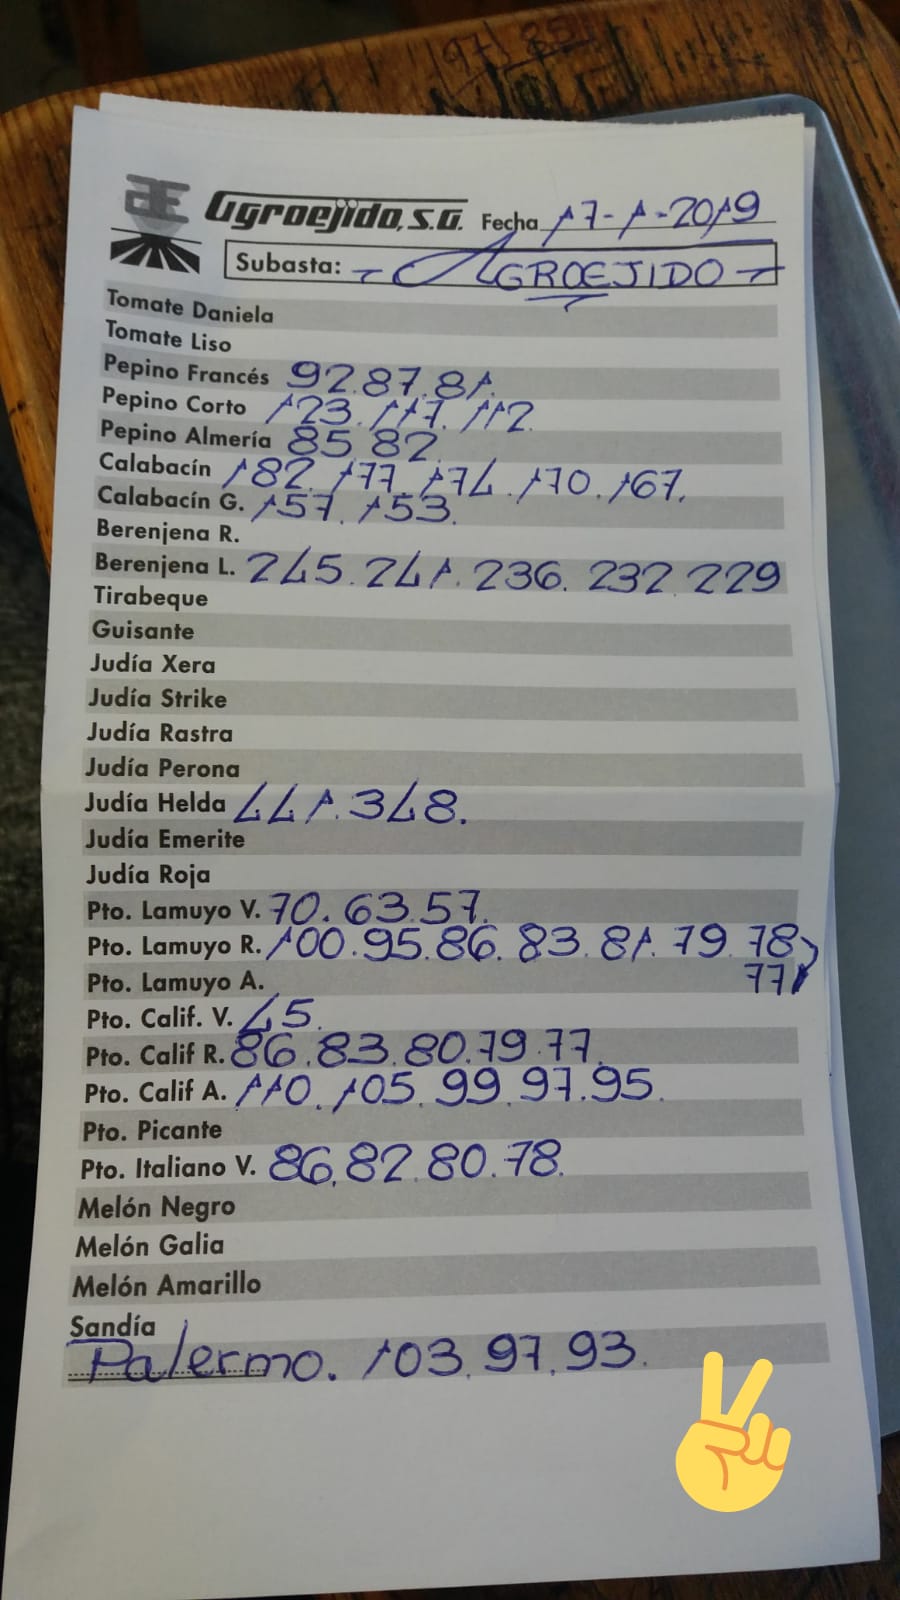 Agroejido, S.A. Fecha 17-1-2019
Subasta: - AGROEJIDO -
Tomate Daniela
Tomate Liso
Pepino Francés 92.87.81.
Pepino Corto 123.117.112.
Pepino Almería 85.82.
Calabacín 182.177.174.170.167.
Calabacín G. 157.153.
Berenjena R.
Berenjena L. 245.241.236.232.229
Tirabeque
Guisante
Judía Xera
Judía Strike
Judía Rastra
Judía Perona
Judía Helda 441.348.
Judía Emerite
Judía Roja
Pto. Lamuyo V. 70.63.57.
Pto. Lamuyo R. 100.95.86.83.81.79.78
77
Pto. Lamuyo A.
Pto. Calif. V. 45.
Pto. Calif R. 86.83.80.79.77.
Pto. Calif A. 110.105.99.97.95.
Pto. Picante
Pto. Italiano V. 86.82.80.78.
Melón Negro
Melón Galia
Melón Amarillo
Sandía
Palermo. 103.97.93.